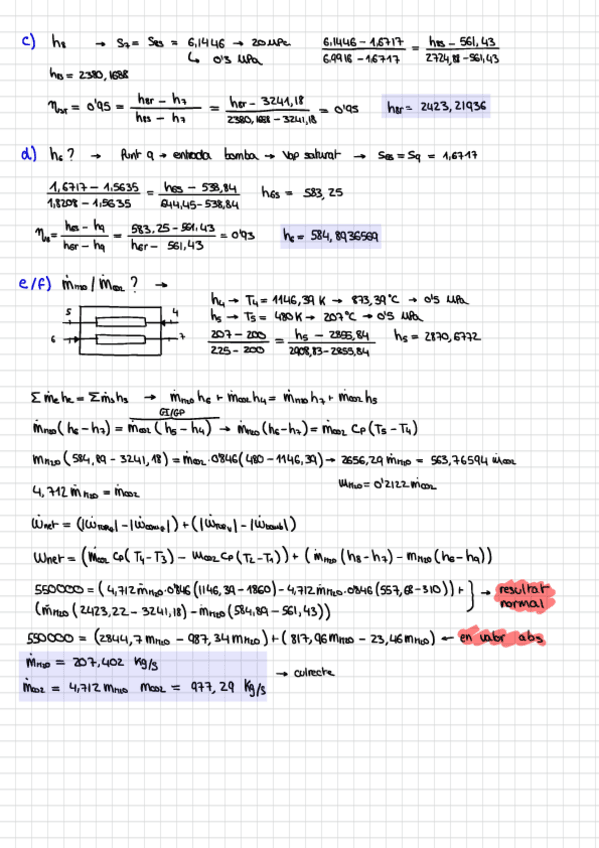 c) h8 → S7 = S8s = 6,1446 → 20 MPa (6,1446 − 1,6717)/(6,9916 − 1,6717) = (h8s − 561,43)/(2724,88 − 561,43)
↳ 0'3 MPa
h8s = 2380,1688
ηtur = 0'95 = (h8r − h7)/(h8s − h7) = (h8r − 3241,18)/(2380,1688 − 3241,18) = 0'95 h8r = 2423,21936
d) h6? → Punt 9 → entrada bomba → Vap saturat → S6s = S9 = 1,6717
(1,6717 − 1,5635)/(1,8208 − 1,5635) = (h6s − 538,84)/(644,45 − 538,84) h6s = 583,25
= (h6s − h9)/(h6r − h9) = (583,25 − 561,43)/(h6r − 561,43) = 0'93 h6 = 584,8936569
e/f) ṁH2O / ṁCO2 ? →
5 4
6 7
h4 → T4 = 1146,39 K → 873,39°C → 0'5 MPa
h5 → T5 = 480 K → 207°C → 0'5 MPa
(207 − 200)/(225 − 200) = (h5 − 2855,84)/(2908,83 − 2855,84) h5 = 2870,6772
Σṁehe = Σṁshs → ṁH2O h6 + ṁCO2 h4 = ṁH2O h7 + ṁCO2 h5
GI/GP
ṁH2O (h6 − h7) = ṁCO2 (h5 − h4) → ṁH2O (h6 − h7) = ṁCO2 Cp (T5 − T4)
mH2O (584,89 − 3241,18) = ṁCO2 · 0'846 (480 − 1146,39) → 2656,29 ṁH2O = 563,76594 ṁCO2
4,712 ṁH2O = ṁCO2 ṁH2O = 0'2122 ṁCO2
Ẇnet = (|Ẇturbg| − |Ẇcompg|) + (|Ẇturbv| − |Ẇbomb|)
Wnet = (ṁCO2 Cp (T4 − T3) − mCO2 Cp (T2 − T1)) + (ṁH2O (h8 − h7) − mH2O (h6 − h9))
550000 = (4,712 ṁH2O · 0'846 (1146,39 − 1860) − 4,712 ṁH2O · 0'846 (557,68 − 310)) + → resultat
(ṁH2O (2423,22 − 3241,18) − ṁH2O (584,89 − 561,43)) normal
550000 = (2844,7 mH2O − 987,34 mH2O) + (817,96 mH2O − 23,46 mH2O) ← en valor abs
ṁH2O = 207,402 kg/s
→ correcte
ṁCO2 = 4,712 mH2O mCO2 = 977,29 kg/s